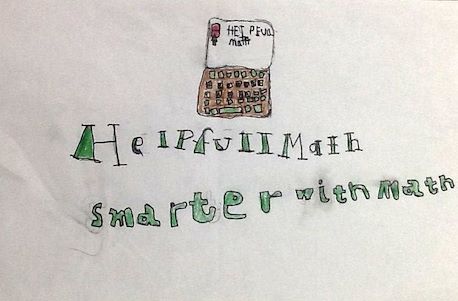 math
HelPfull Math
smarter with math